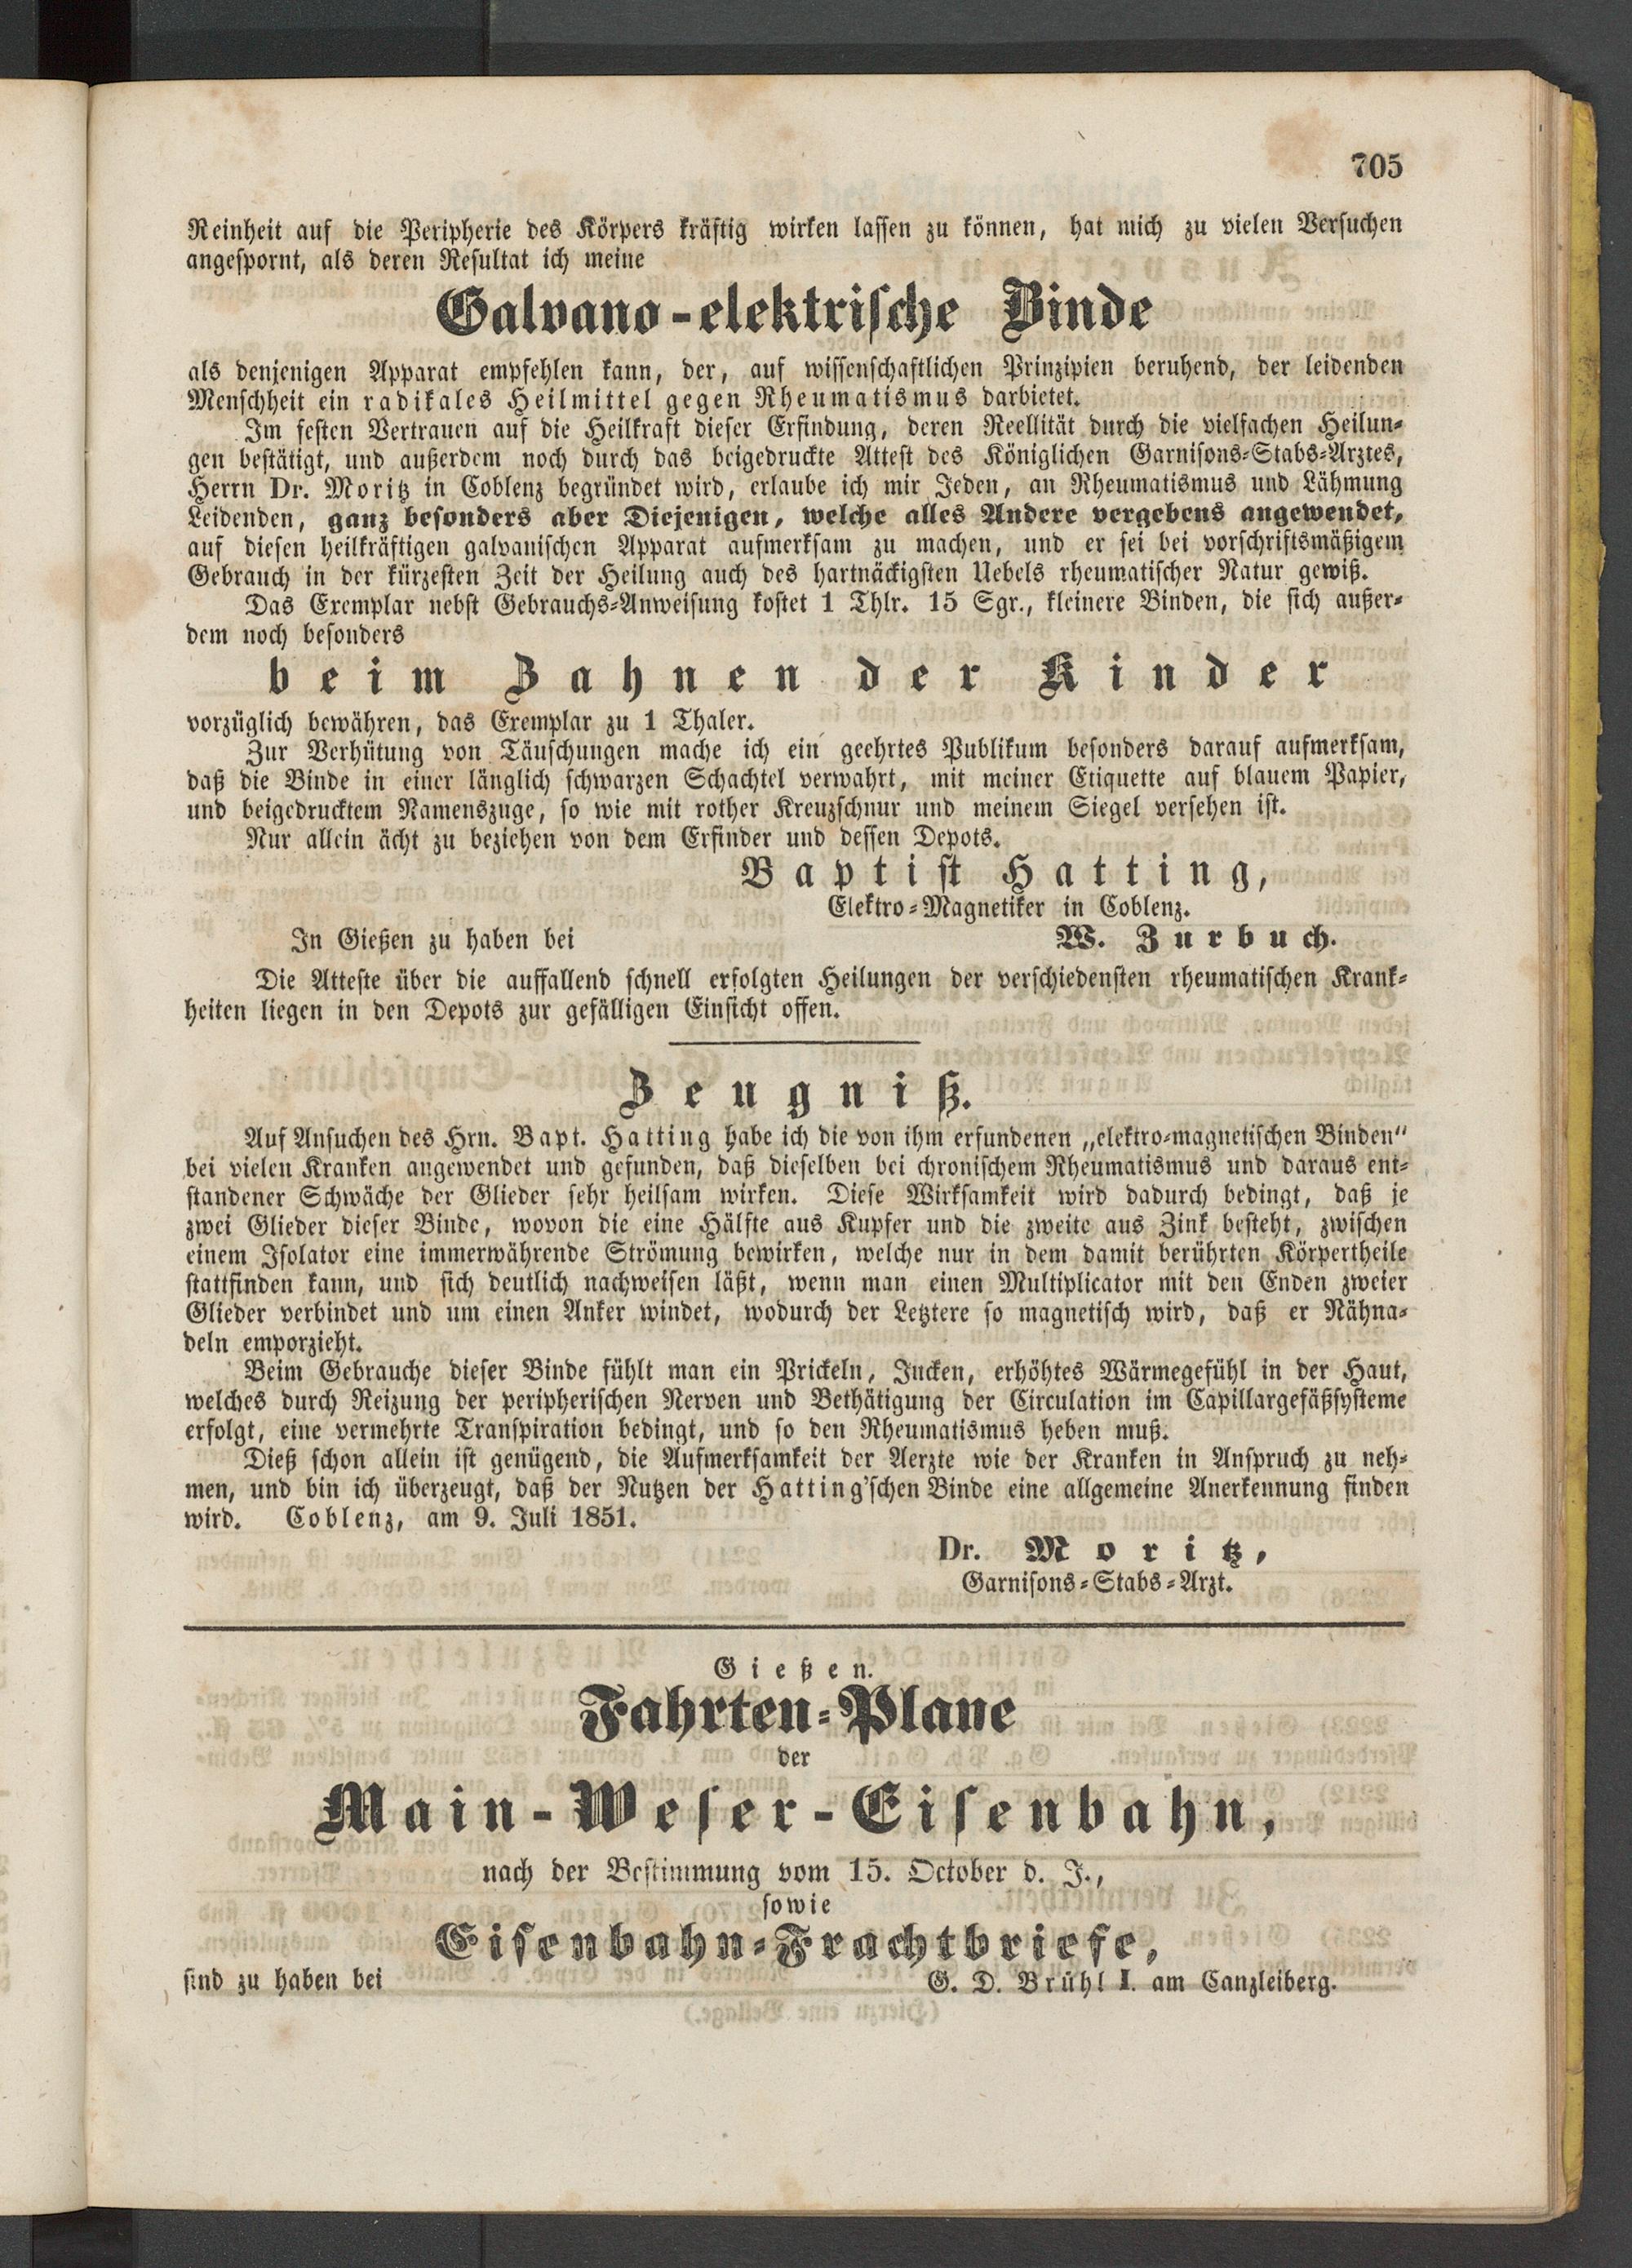 705
Reinheit auf die Peripherie des Körpers kräftig wirken lassen zu können, hat mich zu vielen Versuchen
angespornt, als deren Resultat ich meine
Galvano-elektrische Binde
als denjenigen Apparat empfehlen kann, der, auf wissenschaftlichen Prinzipien beruhend, der leidenden
Menschheit ein radikales Heilmittel gegen Rheumatismus darbietet.
Im festen Vertrauen auf die Heilkraft dieser Erfindung, deren Reellität durch die vielfachen Heilun-
gen bestätigt, und außerdem noch durch das beigedruckte Attest des Königlichen Garnisons-Stabs-Arztes,
Herrn Dr. Moritz in Coblenz begründet wird, erlaube ich mir Jeden, an Rheumatismus und Lähmung
Leidenden, ganz besonders aber Diejenigen, welche alles Andere vergebens angewendet,
auf diesen heilkräftigen galvanischen Apparat aufmerksam zu machen, und er sei bei vorschriftsmäßigem
Gebrauch in der kürzesten Zeit der Heilung auch des hartnäckigsten Uebels rheumatischer Natur gewiß.
Das Exemplar nebst Gebrauchs-Anweisung kostet 1 Thlr. 15 Sgr., kleinere Binden, die sich außer-
dem noch besonders
beim Zahnen der Kinder
vorzüglich bewähren, das Exemplar zu 1 Thaler.
Zur Verhütung von Täuschungen mache ich ein geehrtes Publikum besonders darauf aufmerksam,
daß die Binde in einer länglich schwarzen Schachtel verwahrt, mit meiner Etiquette auf blauem Papier,
und beigedrucktem Namenszuge, so wie mit rother Kreuzschnur und meinem Siegel versehen ist.
Nur allein ächt zu beziehen von dem Erfinder und dessen Depots.
Baptist Hatting,
Elektro-Magnetiker in Coblenz.
In Gießen zu haben bei W. Zurbuch.
Die Atteste über die auffallend schnell erfolgten Heilungen der verschiedensten rheumatischen Krank-
heiten liegen in den Depots zur gefälligen Einsicht offen.
Zeugniß.
Auf Ansuchen des Hrn. Bapt. Hatting habe ich die von ihm erfundenen „elektro-magnetischen Binden“
bei vielen Kranken angewendet und gefunden, daß dieselben bei chronischem Rheumatismus und daraus ent-
standener Schwäche der Glieder sehr heilsam wirken. Diese Wirksamkeit wird dadurch bedingt, daß je
zwei Glieder dieser Binde, wovon die eine Hälfte aus Kupfer und die zweite aus Zink besteht, zwischen
einem Isolator eine immerwährende Strömung bewirken, welche nur in dem damit berührten Körpertheile
stattfinden kann, und sich deutlich nachweisen läßt, wenn man einen Multiplicator mit den Enden zweier
Glieder verbindet und um einen Anker windet, wodurch der Letztere so magnetisch wird, daß er Nähna-
deln emporzieht.
Beim Gebrauche dieser Binde fühlt man ein Prickeln, Jucken, erhöhtes Wärmegefühl in der Haut,
welches durch Reizung der peripherischen Nerven und Bethätigung der Circulation im Capillargefäßsysteme
erfolgt, eine vermehrte Transpiration bedingt, und so den Rheumatismus heben muß.
Dieß schon allein ist genügend, die Aufmerksamkeit der Aerzte wie der Kranken in Anspruch zu neh-
men, und bin ich überzeugt, daß der Nutzen der Hatting'schen Binde eine allgemeine Anerkennung finden
wird. Coblenz, am 9. Juli 1851.
Dr. Moritz,
Garnisons-Stabs-Arzt.
Gießen.
Fahrten-Plane
der
Main-Weser-Eisenbahn,
nach der Bestimmung vom 15. October d. J.,
sowie
Eisenbahn-Frachtbriefe,
sind zu haben bei G. D. Brühl I. am Canzleiberg.